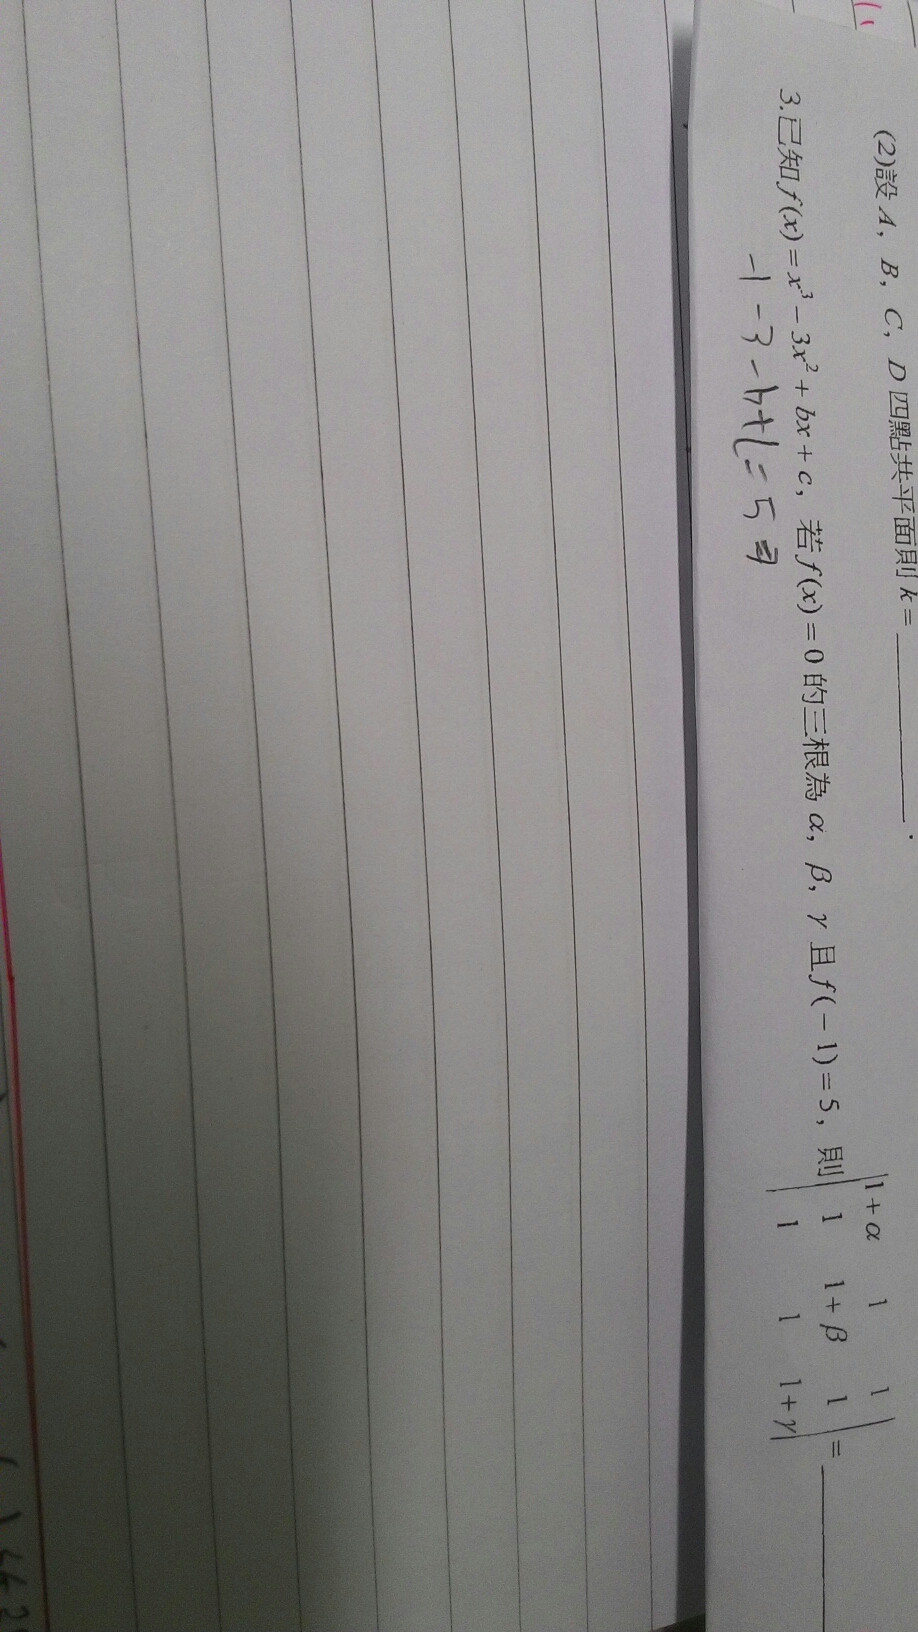 (2)設 A, B, C, D 四點共平面則 k = ________.
3.已知 f(x) = x³ − 3x² + bx + c, 若 f(x) = 0 的三根為 α, β, γ 且 f(−1) = 5, 則
|1+α 1 1|
|1 1+β 1| = ________
|1 1 1+γ|
−1 −3 −b + c = 5 ⇒